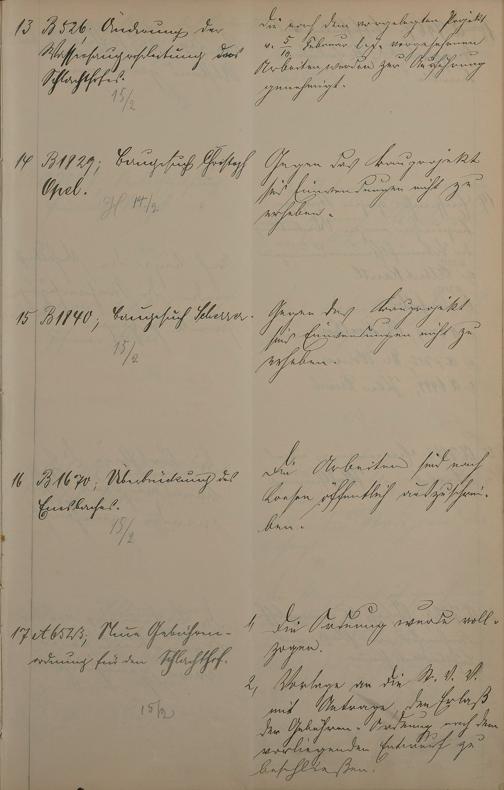 13 B 526. Änderung der
Wasserhauptleitung des
Schlachthofes.
15/2
Die nach dem vorgelegten Projekt
v. 5/10. Februar vorgesehenen
Arbeiten werden zur Ausführung
genehmigt.
14 B 1829; Baugesuch Christoph
Opel.
14/2
Gegen das Bauprojekt
sind Einwendungen nicht zu
erheben.
15 B 1840; Baugesuch Scherrer.
15/2
Gegen das Bauprojekt
sind Einwendungen nicht zu
erheben.
16 B 1670; Überbrückung des
Emsbaches.
15/2
Die Arbeiten sind nach
Losen öffentlich auszuschrei-
ben.
17 A 6523; Neue Gebühren-
ordnung für den Schlachthof.
15/2
1, Die Ordnung wurde voll-
zogen.
2, Vorlage an die St. V. V.
mit Antrage, den Erlaß
der Gebühren-Ordnung nach dem
vorliegenden Entwurf zu
beschließen.